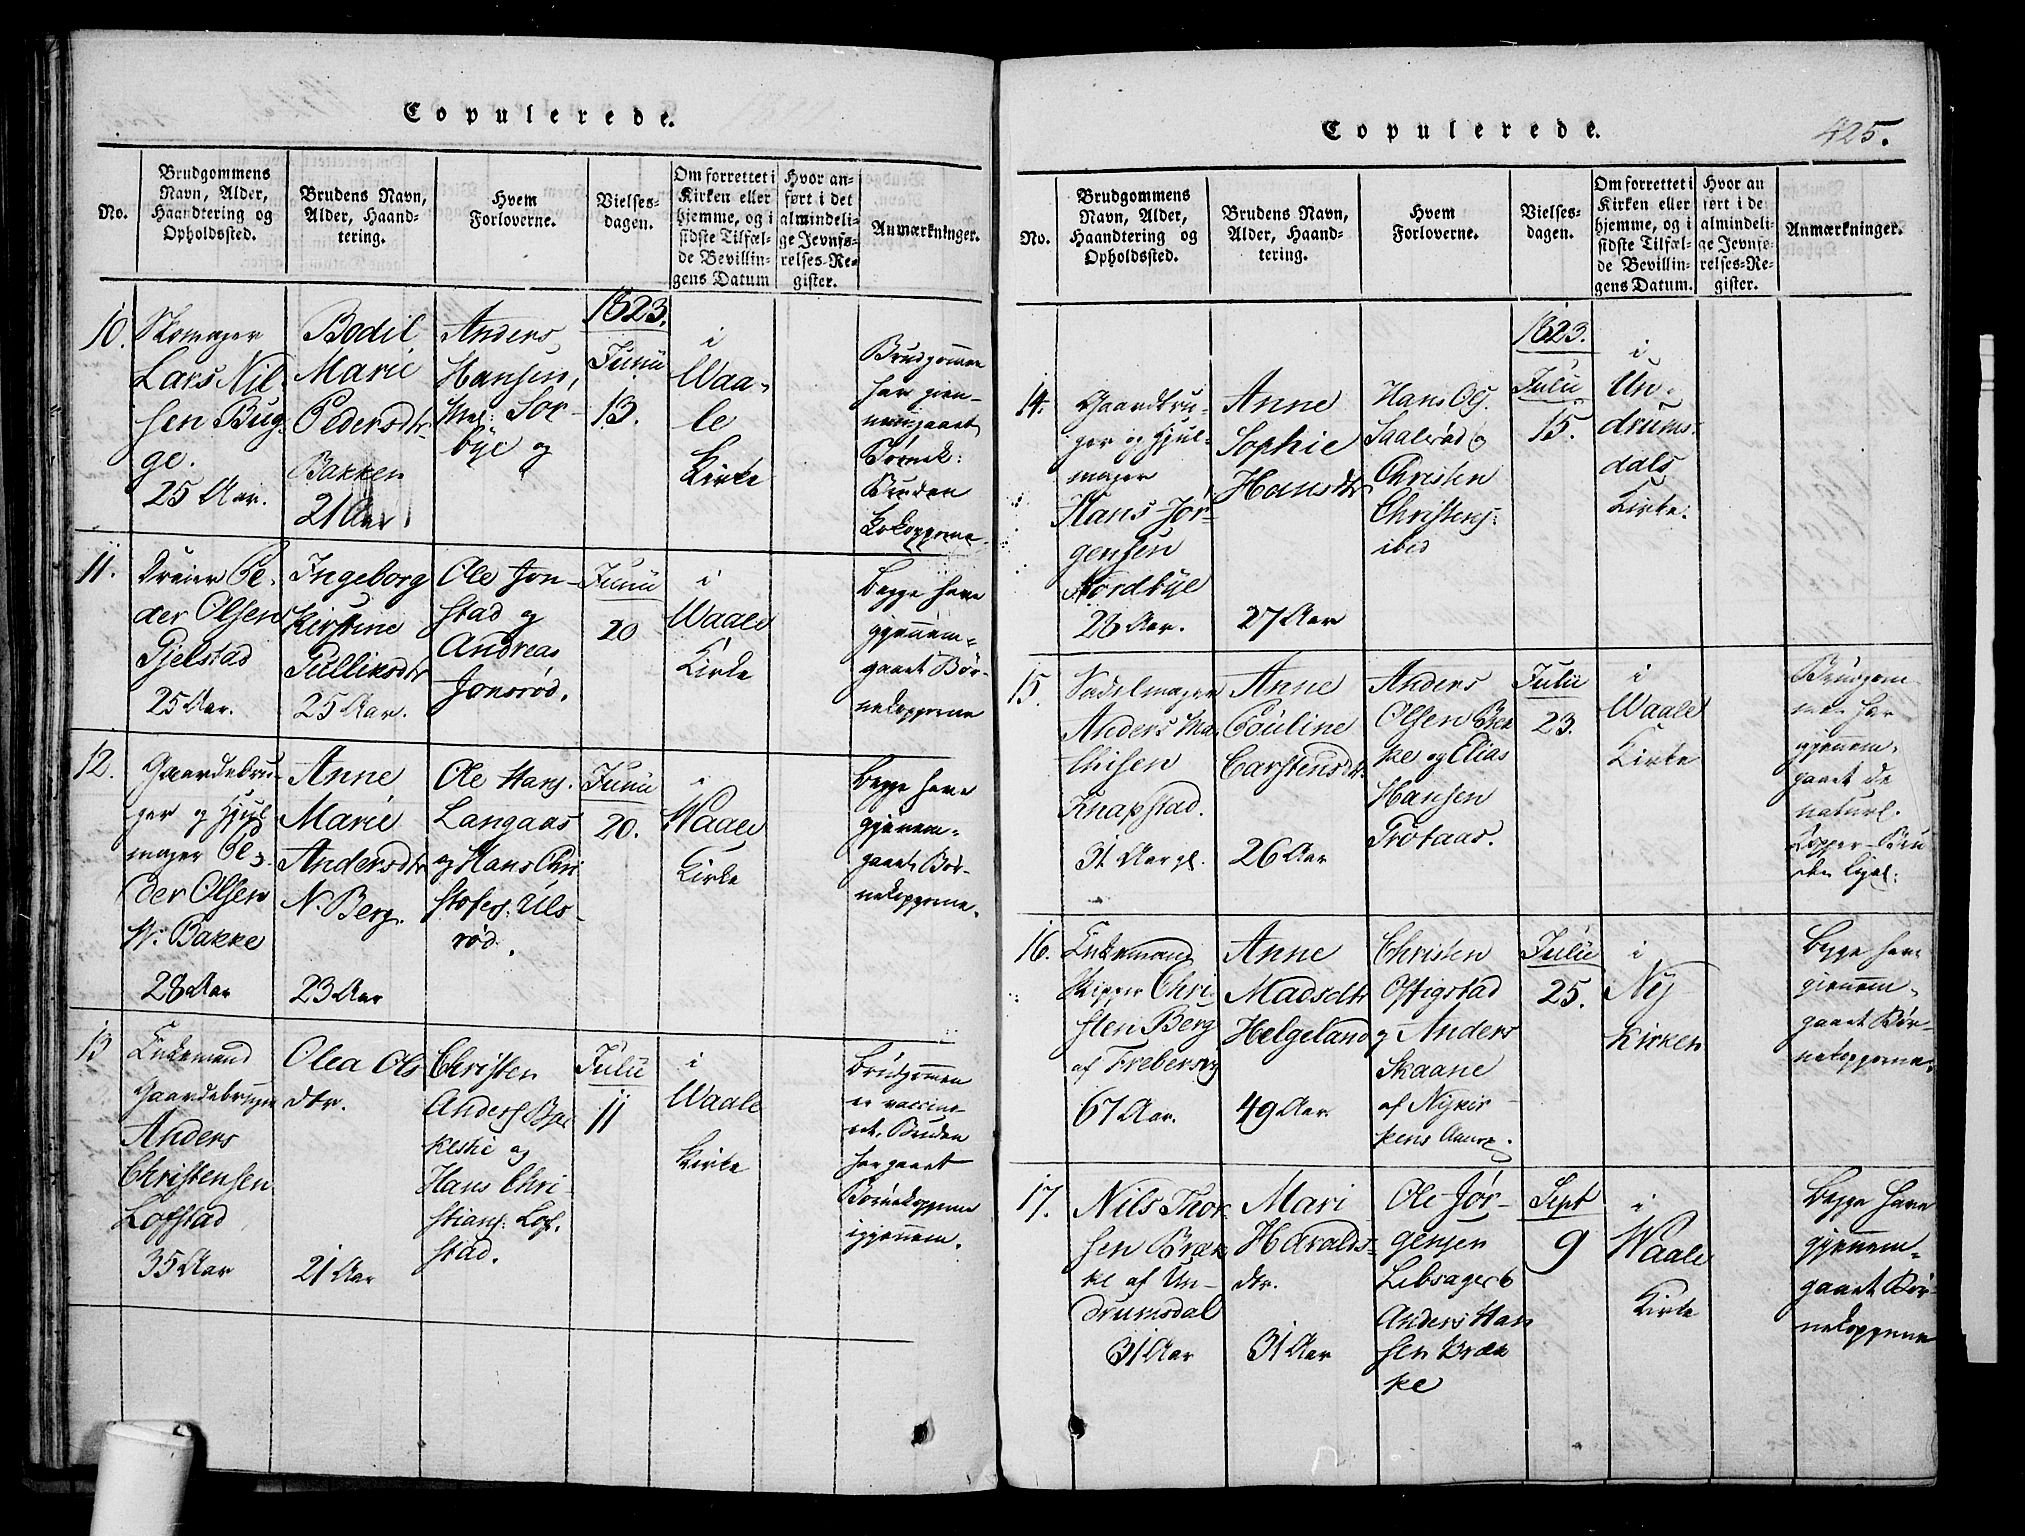 Copulerede.
No.
Brudgommens
Navn, Alder,
Haandtering og
Opholdssted.
Brudens Navn,
Alder, Haand-
tering.
Hvem
Forloverne.
Vielses-
dagen.
Om forrettet i
Kirken eller
hjemme, og i
sidste Tilfæl-
de Bevillin-
gens Datum
Hvor an-
ført i det
almindeli-
ge Jevnfø-
relses-Re-
gister.
Anmærkninger.
10.
Skomager
Lars Nil-
sen Bug-
ge.
25 Aar.
Bodil
Marie
Pedersdtr
Bakken
21 Aar
Anders
Hansen,
Sør-
bye og
1823.
Junii
13.
i
Waa-
le
Kirke
Brudgommen
har gien-
nemgaaet
Børnek:
Bruden
Kokopperne.
11.
Dreier Pe-
der Olsen
Gjelstad
25 Aar.
Ingeborg
Kirstine
Tulliksdtr
25 Aar.
Ole Jon-
stad og
Andreas
Jonsrød.
Junii
20
i
Waale
Kirke
Begge have
gjennem-
gaaet Bør-
nekopperne
12.
Gaardebru-
ger og Hjul-
mager Pe-
der Olsen
N. Bakke
28 Aar
Anne
Marie
Andersdtr
N. Berg.
23 Aar
Ole Hans.
Langaas
og Hans Chri
stofers. Uls-
rød.
Junii
20.
i
Waale
Kirke
Begge have
gjennem-
gaaet Bør-
nekopperne.
13
Enkemand
Gaardebruger
Anders
Christensen
Lofstad
35 Aar
Olea Ols
dtr.
21 Aar
Christen
Anders. Bak
keskie og
Hans Chri-
stians. Lof-
stad.
Julii
11
i
Waale
Kirke
Brudgommen
er vaccine-
ret, Bruden
har gaaet
Børnekopperne
igjennem.
Copulerede.
425.
No.
Brudgommens
Navn, Alder,
Haandtering og
Opholdssted.
Brudens Navn,
Alder, Haand-
tering.
Hvem
Forloverne.
Vielses-
dagen.
Om forrettet i
Kirken eller
hjemme, og i
sidste Tilfæl-
de Bevillin-
gens Datum.
Hvor an
ført i de
almindeli-
ge Jevnfø-
relses-Re-
gister.
Anmærkninger.
14.
Gaardbru-
ger og Hjul-
mager
Hans Jør-
gensen
Nordbye
28 Aar.
Anne
Sophie
Hansdtr
27 Aar
Hans Ols.
Saalerød og
Christen
Christens:
ibid
1823.
Julii
15.
i
Un-
drums-
dals
Kirke.
15.
Sadelmager
Anders Ma-
thisen
Knapstad.
31 Aar gl.
Anne
Pouline
Carstensdtr.
26 Aar
Anders
Olsen Bek
ke og Elias
Hansen
Trøtaas.
Julii
23.
i
Waale
Kirke
Brudgom-
men har
gjennem-
gaaet de
naturl.
Kopper-Bru
den
16.
Enkemand
Skipper Chri-
sten Berg
af Freberg
67 Aar.
Anne
Madsdtr
Helgeland
49 Aar.
Christen
Oftigstad
og Anders
Skaane
af Nykir-
kens Annex.
Julii
25.
i
Ny
Kirken
Begge have
gjennem-
gaaet Bør-
nekopperne.
17.
Nils Thor-
sen Bræk-
ke af Un-
drumsdal
31 Aar
Mari
Haralds-
dtr.
31 Aar
Ole Jør-
gensen
Libsager &
Anders Han
sen Bræk
ke
Sept
9
i
Waale
Kirke
Begge have
gjennem-
gaaet Bør-
nekopperne